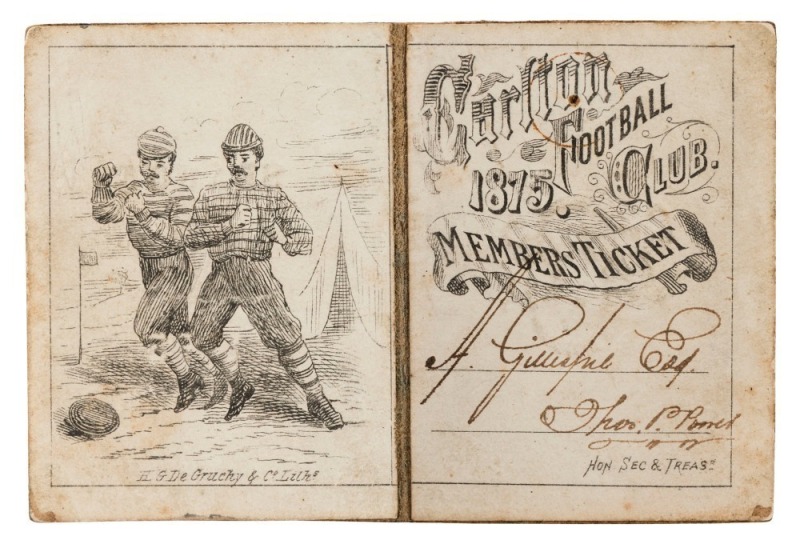 H. G. De Gruchy & Co. Liths
Carlton
Football
Club.
1875.
Members Ticket
A. Gillespie Esq.
Thos. P. Power
Hon Sec & Treasr